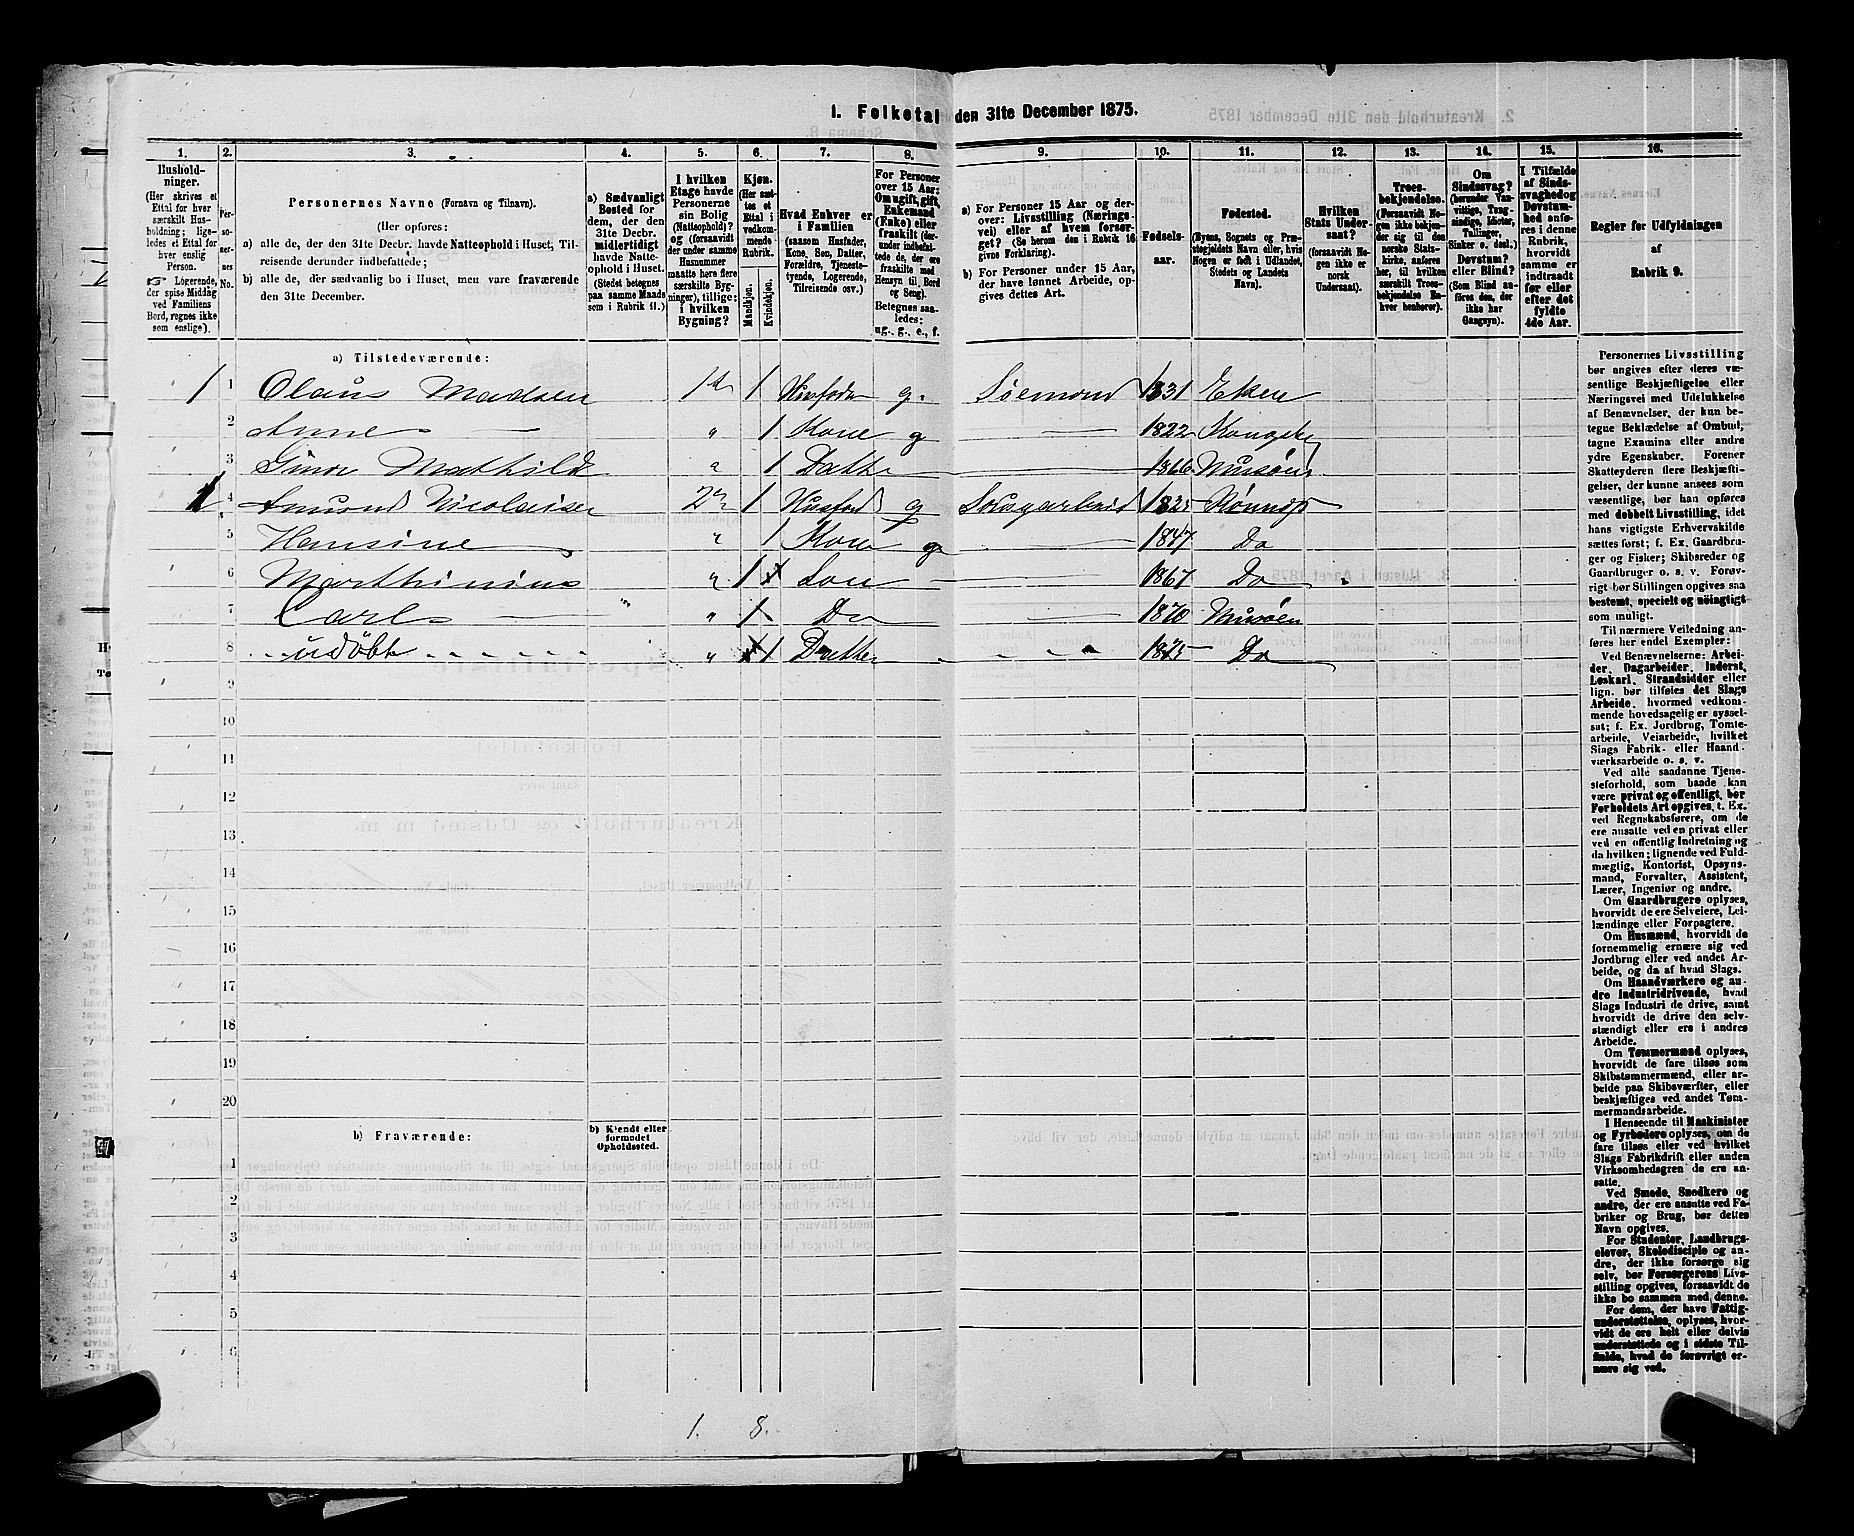 1. Folketal den 31te December 1875.
1. 2. 3. 4. 5. 6. 7. 8. 9. 10. 11. 12. 13. 14. 15. 16.
Husholdninger.
(Her skrives et
Ettal for hver
særskilt Hus-
holdning; lige-
ledes et Ettal for
hver enslig
Person.
☞ Logerende,
der spise Middag
ved Familiens
Bord, regnes ikke
som enslige).
Per-
so-
ner-
nes
No.
Personernes Navne (Fornavn og Tilnavn).
(Her opføres:
a) alle de, der den 31te Decbr. havde Natteophold i Huset, Til-
reisende derunder indbefattede;
b) alle de, der sædvanlig bo i Huset, men vare fraværende
den 31te December.
a) Sædvanligt
Bosted for
dem, der den
31te Decbr.
midlertidigt
havde Natte-
ophold i Huset.
(Stedet betegnes
paa samme Maade
som i Rubrik 11.)
I hvilken
Etage havde
Personerne
sin Bolig
(Natteophold)?
og (forsaavidt
der under samme
Husnummer
maatte høre flere
særskilte Byg-
ninger), tillige:
i hvilken
Bygning?
Kjøn.
(Her sæt-
tes et
Ettal i
vedkom-
mende
Rubrik.
Mandkjøn.
Kvindekjøn.
Hvad Enhver er
i Familien
(saasom Husfader,
Kone, Søn, Datter,
Forældre, Tjeneste-
tyende, Logerende,
Tilreisende osv.)
For Personer
over 15 Aar:
Om ugift, gift,
Enkemand
(Enke) eller
fraskilt (der-
under indbefat-
tede de, der ere
fraskilte med
Hensyn til Bord
og Seng).
Betegnes saa-
ledes:
ug., g., e., f.
a) For Personer 15 Aar og der-
over: Livsstilling (Nærings-
vei) eller af hvem forsør-
get? (Se herom den i Rubrik 16
givne Forklaring).
b) For Personer under 15 Aar,
der have lønnet Arbeide, op-
gives dettes Art.
Fødsels-
aar.
Fødested.
(Byens, Sognets og Præ-
stegjeldets Navn eller, hvis
Nogen er født i Udlandet,
Stedets og Landets
Navn).
Hvilken
Stats Under-
saat?
(forsaavidt No-
gen ikke er
norsk
Undersaat).
Troes-
bekjendelse.
(Forsaavidt No-
gen ikke bekjen-
der sig til den
norske Stats-
kirke, anføres
her, til hvilken
særskilt Troes-
bekjendelse En-
hver henhører).
Om
Sindssvag?
(herunder Van-
vittige, Tung-
sindige, Idioter,
Tallinger,
Sinker o. desl.)
Døvstum?
eller Blind?
(Som Blind an-
føres den, der
ikke har
Gangsyn).
I Tilfælde
af Sinds-
svaghed og
Døvstum-
hed anfø-
res i denne
Rubrik,
hvorvidt
samme er
indtraadt
før eller
efter det
fyldte
4de Aar.
Regler for Udfyldningen
af
Rubrik 9.
a) Tilstedeværende:
1 1 Olaus Madsen 1ste 1 Husfader g. Søemand 1831 Eker
2 Anne — " 1 Kone g — 1822 Kongsberg
3 Mathilde " 1 Datter — 1866
4 Amund Nicolaisen 2n 1 Husfad g Sougarbeid 1825
5 Hansine " 1 Kone g — 1847 Do
6 Marthinius " 1 Søn — 1867 Do
7 Carl — " 1 Do — 1870
8 udøbt " 1 Datter 1875 Do
9
10
11
12
13
14
15
16
17
18
19
20
b) Fraværende:
b) Kjendt eller
formodet
Opholdssted.
1
2
3
4
5
6
1. 8.
Personernes Livsstilling
bør angives efter deres væ-
sentlige Beskjæftigelse eller
Næringsvei med Udelukkelse
af Benævnelser, der kun be-
tegne Beklædelse af Ombud,
tagne Examina eller andre
ydre Egenskaber. Forener
Skatteyderen flere Beskjæfti-
gelser, der kunne ansees som
væsentlige, bør han opføres
med dobbelt Livsstilling, idet
hans vigtigste Erhvervskilde
sættes først; f. Ex. Gaardbru-
ger og Fisker; Skibsreder og
Gaardbruger o. s. v. Forøv-
rigt bør Stillingen opgives saa
bestemt, specielt og nøiagtigt
som muligt.
Til nærmere Veiledning an-
føres her endel Exempler:
Ved Benævnelserne: Arbei-
der, Dagarbeider, Inderst,
Løskarl, Strandsidder eller
lign. bør tilføies det Slags
Arbeide, hvormed vedkom-
mende hovedsagelig er syssel-
sat; f. Ex. Jordbrug, Tomte-
arbeide, Veiarbeide, hvilket
Slags Fabrik- eller Haand-
værksarbeide o. s. v.
Ved alle saadanne Tjene-
steforhold, som baade kan
være privat og offentligt, bør
Forholdets Art opgives, t. Ex.
ved Regnskabsførere, om de
ere ansatte ved en privat eller
ved en offentlig Indretning og
da hvilken; lignende ved Fuld-
mægtig, Kontorist, Opsyns-
mand, Forvalter, Assistent,
Lærer, Ingeniør og andre.
Om Gaardbrugere oplyses,
hvorvidt de ere Selveiere, Lei-
lændinge eller Forpagtere.
Om Husmænd, hvorvidt de
fornemmelig ernære sig ved
Jordbrug eller ved andet Ar-
beide, og da af hvad Slags.
Om Haandværkere og an-
dre Industridrivende, hvad
Slags Industri de drive, samt
hvorvidt de drive den selv-
stændigt eller ere i andres
Arbeide.
Om Tømmermænd oplyses,
hvorvidt de fare tilsøs som
Skibstømmermænd, eller ar-
beide paa Skibsværfter, eller
beskjæftiges ved andet Tøm-
mermandsarbeide.
I Henseende til Maskinister
og Fyrbødere oplyses, om de
fare tilsøs eller ved hvilket
Slags Fabrikdrift eller anden
Virksomhedsgren de ere an-
satte.
Ved Smede, Snedkere og
andre, der ere ansatte ved Fa-
briker og Brug, bør dettes
Navn opgives.
For Studenter, Landbrugs-
elever, Skoledisciple og an-
dre, der ikke forsørge sig
selv, bør Forsørgerens Livs-
stilling opgives, forsaavidt de
ikke bo sammen med denne.
For dem, der have Fattig-
understøttelse, oplyses, hvor-
vidt de ere helt eller delvis
understøttede og i sidste Til-
fælde, hvad de forøvrigt er-
nære sig ved.